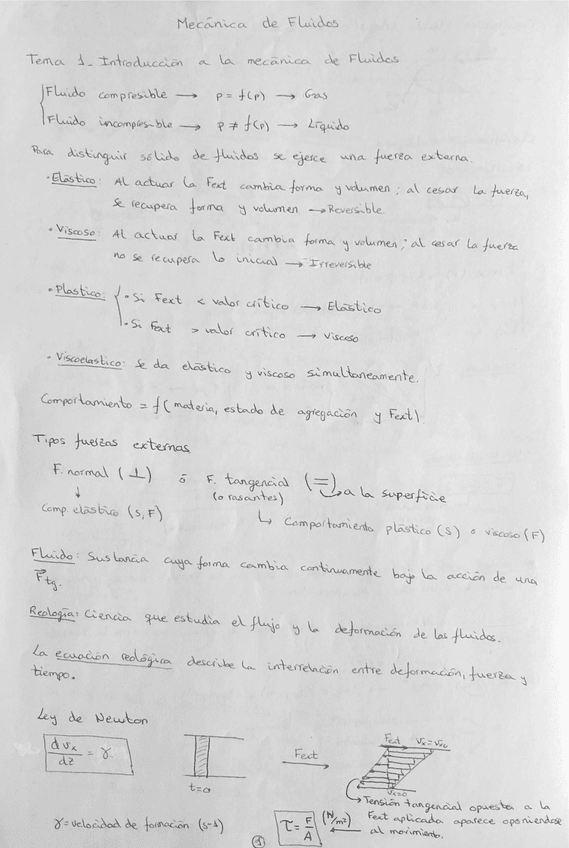 Mecánica de Fluidos
Tema 1_ Introducción a la mecánica de Fluidos
Fluido compresible → ρ = f(p) → Gas
Fluido incompresible → ρ ≠ f(p) → Líquido
Para distinguir sólido de fluidos se ejerce una fuerza externa.
· Elástico: Al actuar la Fext cambia forma y volumen; al cesar la fuerza,
se recupera forma y volumen → Reversible.
· Viscoso: Al actuar la Fext cambia forma y volumen; al cesar la fuerza
no se recupera lo inicial → Irreversible
· Plástico: { · Si Fext < valor crítico → Elástico
· Si Fext > valor crítico → Viscoso
· Viscoelástico: Se da elástico y viscoso simultaneamente.
Comportamiento = f(materia, estado de agregación y Fext)
Tipos fuerzas externas
F. normal (⊥) ó F. tangencial (=) → a la superficie
↓ (o rasantes)
Comp. elástico (S, F) ↳ Comportamiento plástico (S) o viscoso (F)
Fluido: Sustancia cuya forma cambia continuamente bajo la acción de una
F⃗tg.
Reología: Ciencia que estudia el flujo y la deformación de los fluidos.
La ecuación reológica describe la interrelación entre deformación, fuerza y
tiempo.
Ley de Newton
dvx/dz = γ
t=0
Fext
Fext vx = vx0
vx=0
→ Tensión tangencial opuesta a la
Fext aplicada aparece oponiendose
al movimiento.
γ = velocidad de formación (s-1)
τ = F/A (N/m²)
1